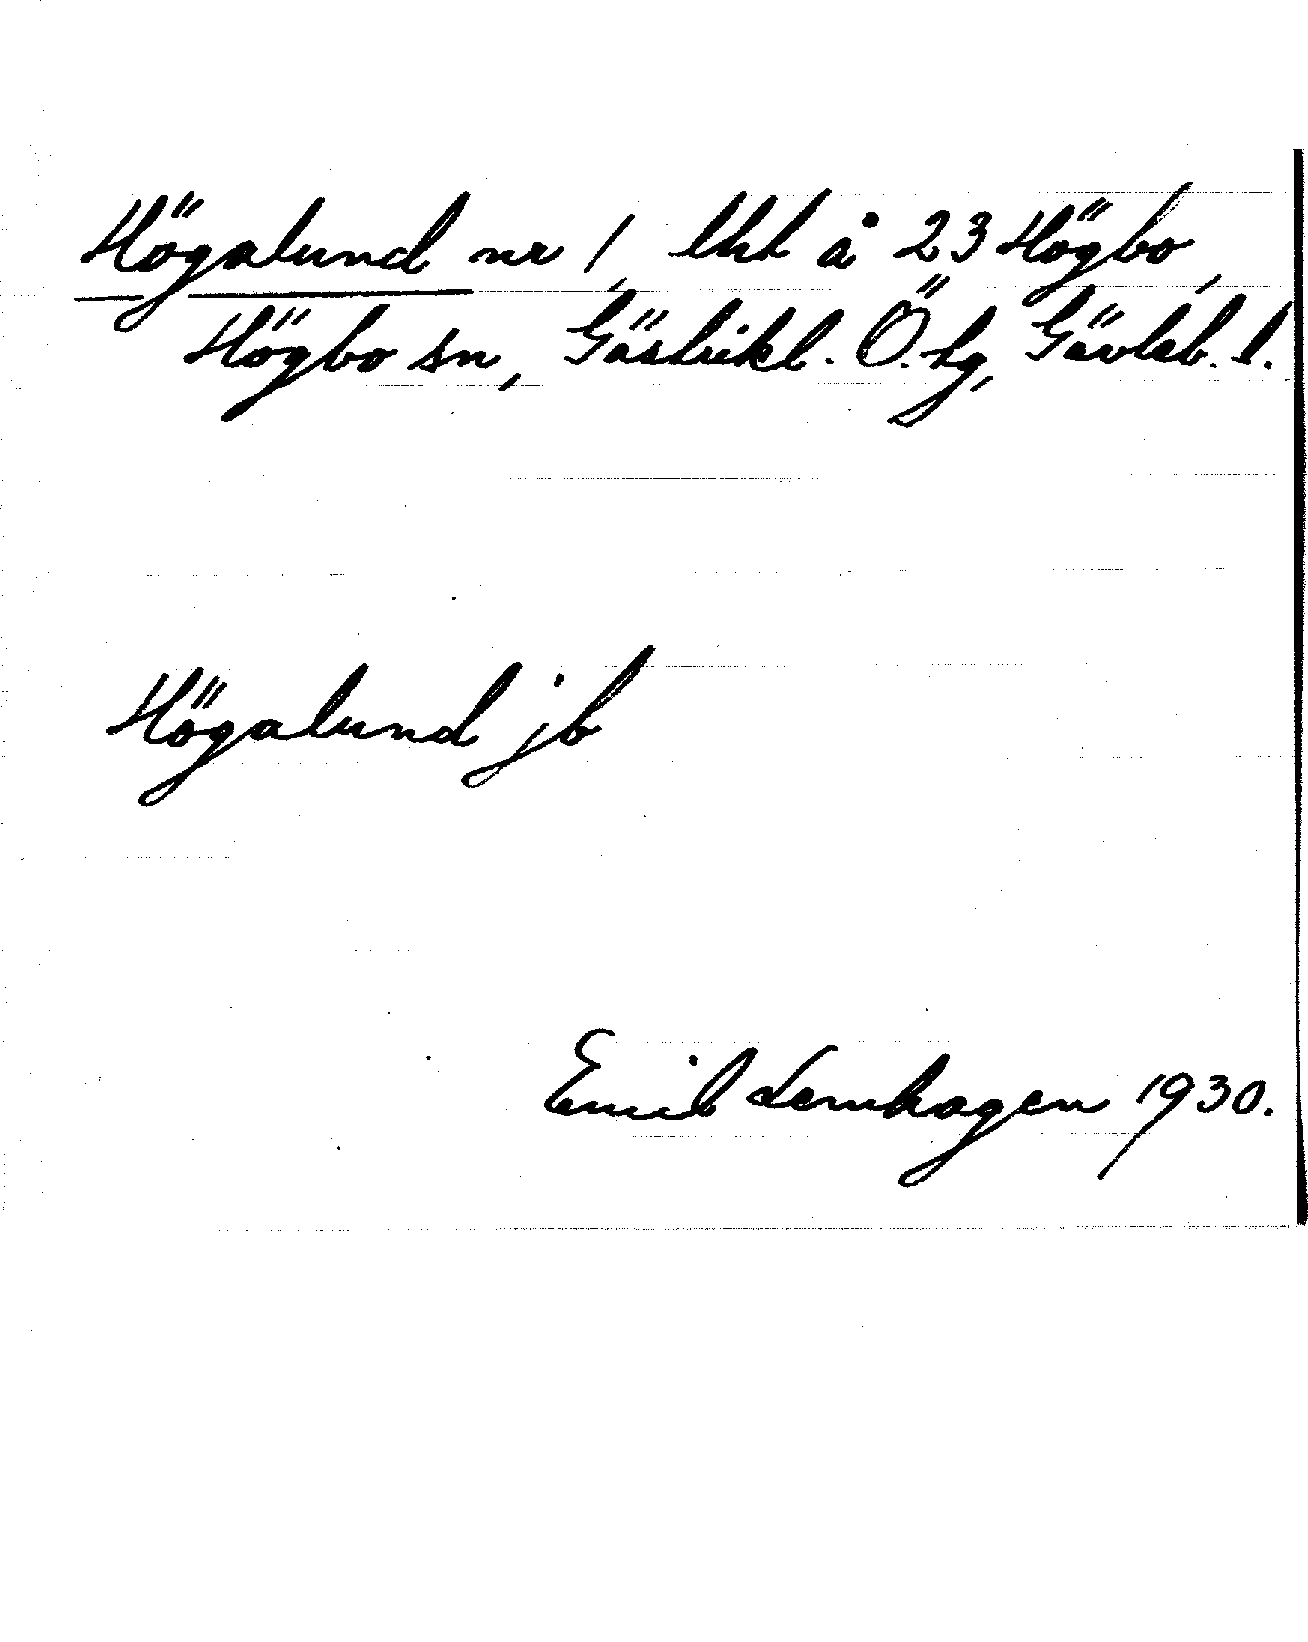 Högalund nr 1, lht å 23 Högbo,
Högbo sn, Gästrikl. Ö. hg, Gävleb. l.
Högalund jb
Emil Lernhagen 1930.